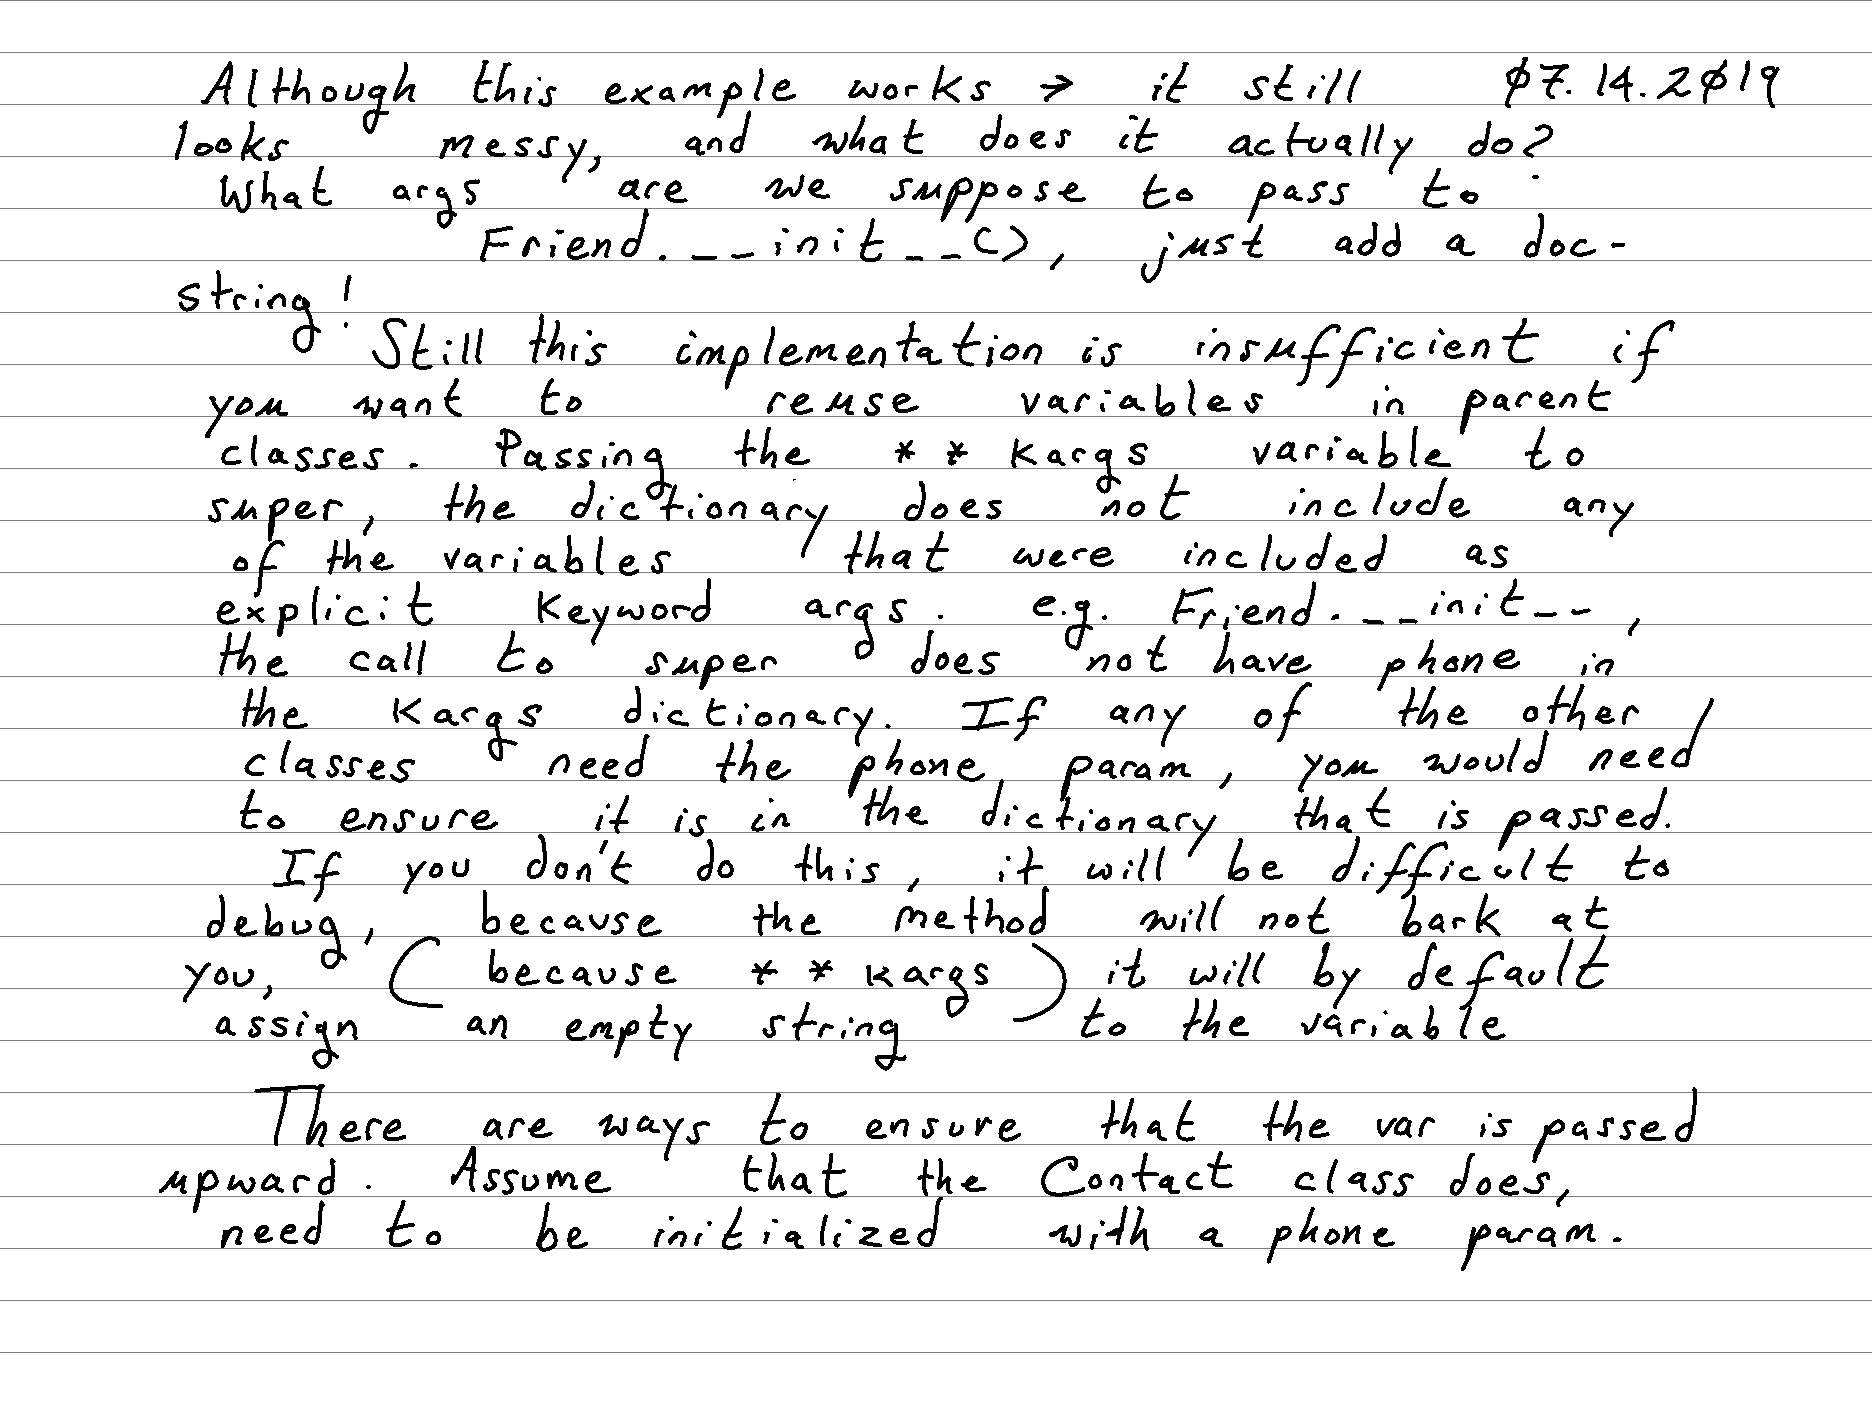 Although this example works → it still 07.14.2019
looks messy, and what does it actually do?
What args are we suppose to pass to
Friend.__init__(), just add a doc-
string!
Still this implementation is insufficient if
you want to reuse variables in parent
classes. Passing the **kargs variable to
super, the dictionary does not include any
of the variables that were included as
explicit keyword args. e.g. Friend.__init__,
the call to super does not have phone in
the kargs dictionary. If any of the other
classes need the phone param, you would need
to ensure it is in the dictionary that is passed.
If you don't do this, it will be difficult to
debug, because the method will not bark at
you, (because **kargs) it will by default
assign an empty string to the variable
There are ways to ensure that the var is passed
upward. Assume that the Contact class does,
need to be initialized with a phone param.